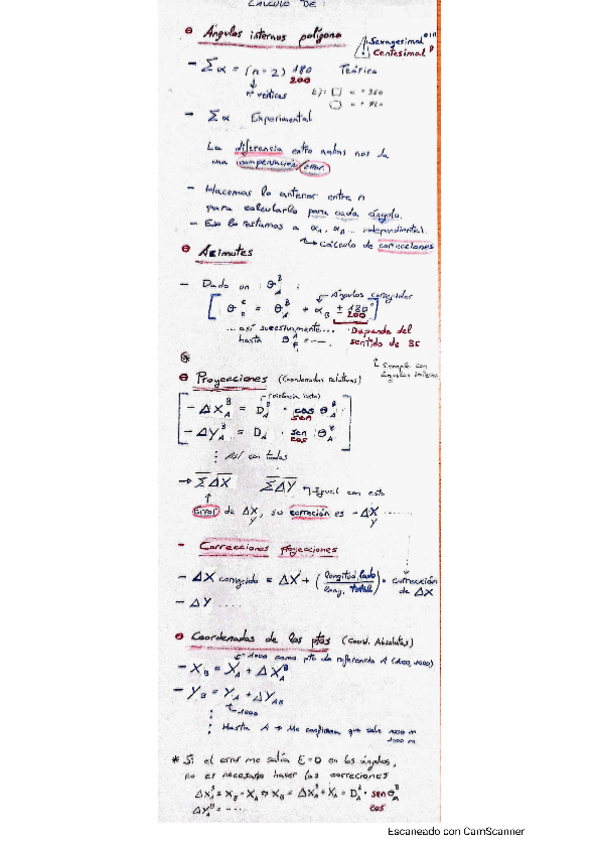 CALCULO DE :
Ángulos internos polígono
Sexagesimal
Centesimal
- Σα = (n - 2) 180 Teórica
200
nº vértices
- Σα Experimental
La diferencia entre ambas nos da
una compensación/error.
- Hacemos lo anterior entre n
para calcularlo para cada ángulo.
- Eso lo restamos a αA, αB...
↳ Cálculo de correcciones
Azimutes
- Dado un θ_A^B :
Ángulos corregidos
= θ_A^B + α_B ± 180°
200
... así sucesivamente... Depende del
hasta sentido de
Siempre con
ángulos internos
Proyecciones (Coordenadas relativas)
- ΔX_A^B = D_A^B · cos θ_A^B
sen
- ΔY_A^B = D_A · sen θ_A^B
cos
Así con todos
→ ΣΔX ΣΔY Igual con esto
Error de ΔX, su corrección es -ΔX ......
Y Y
- Correcciones proyecciones
- ΔX corregido = ΔX + (longitud lado / long. total) · corrección
de ΔX
- ΔY ....
Coordenadas de los ptos (Coord. Absolutas)
1000 como pto de referencia A (1000, 1000)
- X_B = X_A + ΔX_A^B
- Y_B = Y_A + ΔY_AB
1000
Hasta A → Me confirma que sale 1000 m
1000 m
* Si el error me salía E=0 en los ángulos,
no es necesario hacer las correciones
ΔX_A^B = X_B - X_A ⇒ X_B = ΔX_A^B + X_A = D_A^B · sen θ_A^B
cos
ΔY_A^B = - ....
Escaneado con CamScanner